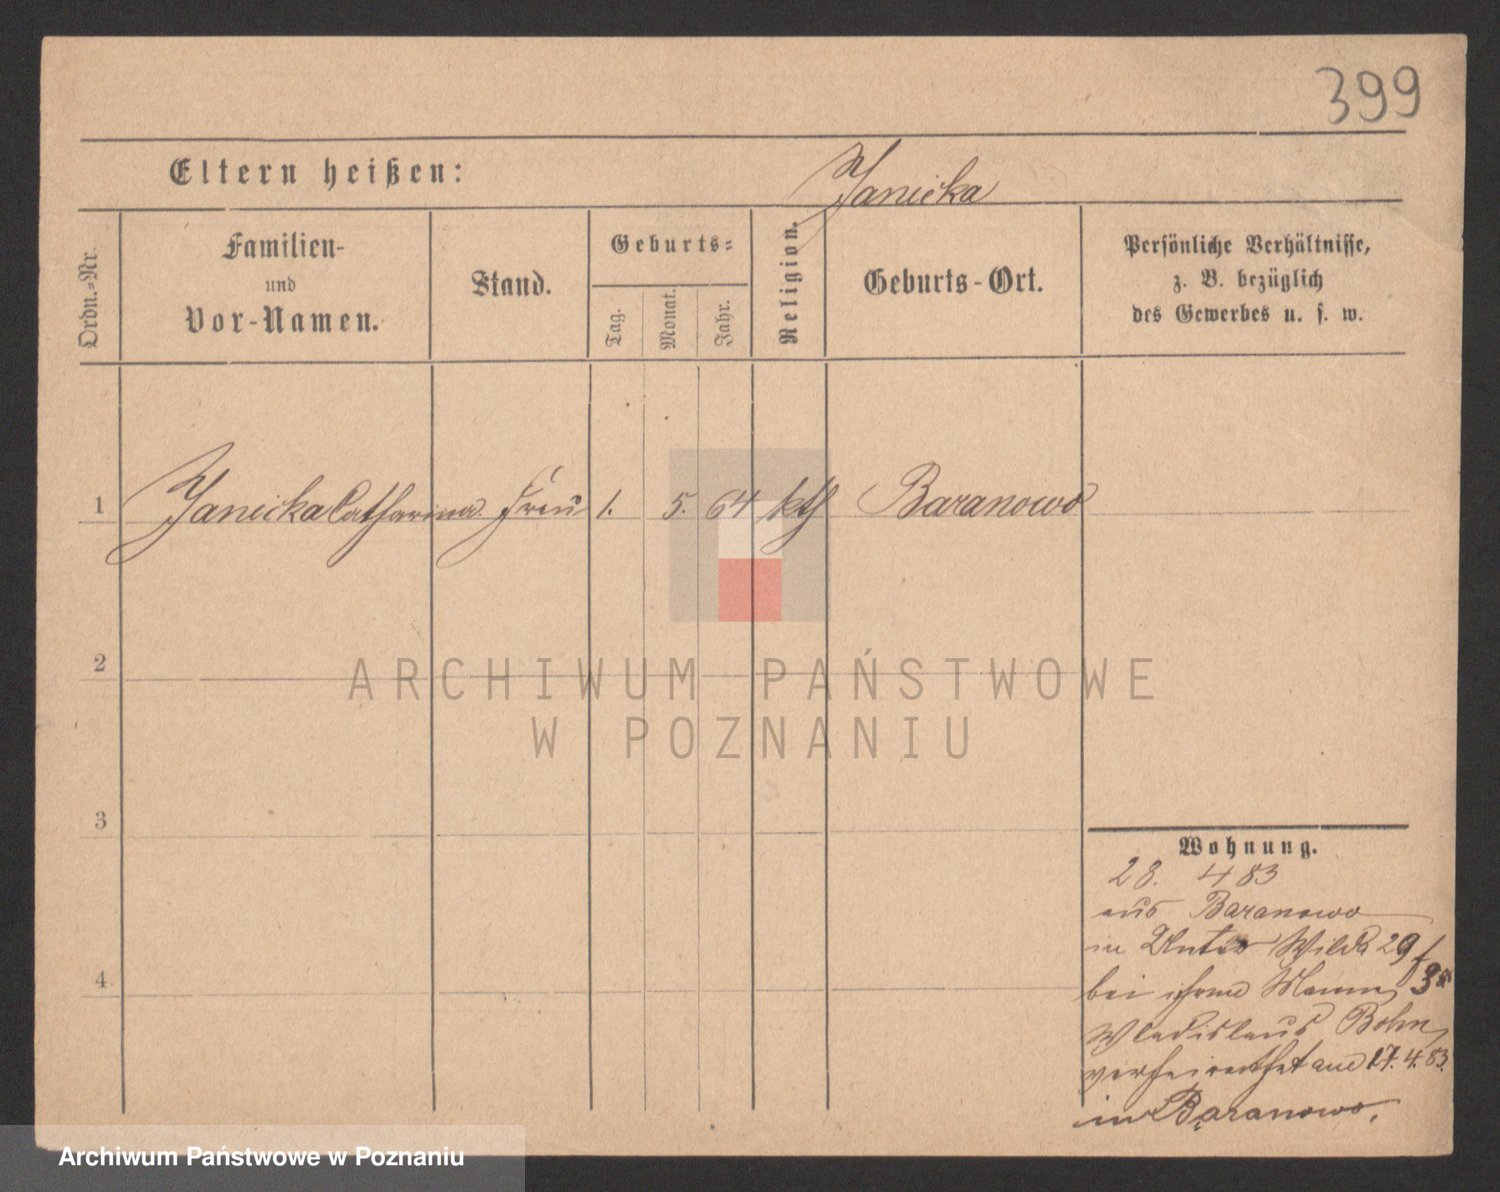 399
Eltern heißen: Janicka
Ordn.=Nr.
Familien-
und
Vor-Namen.
Stand.
Geburts=
Tag.
Monat.
Jahr.
Religion.
Geburts-Ort.
Persönliche Verhältnisse,
z. B. bezüglich
des Gewerbes u. s. w.
1 Janicka Catharina Frau 1. 5. 64 kth Baranowo
2
3
4
Wohnung.
28. 4 83
aus Baranowo
in Unter Wilda 29/38
bei ihrem Mann
Wladislaus Bohn
verheirathet am 17. 4. 83.
in Baranowo.
ARCHIWUM PAŃSTWOWE
W POZNANIU
Archiwum Państwowe w Poznaniu